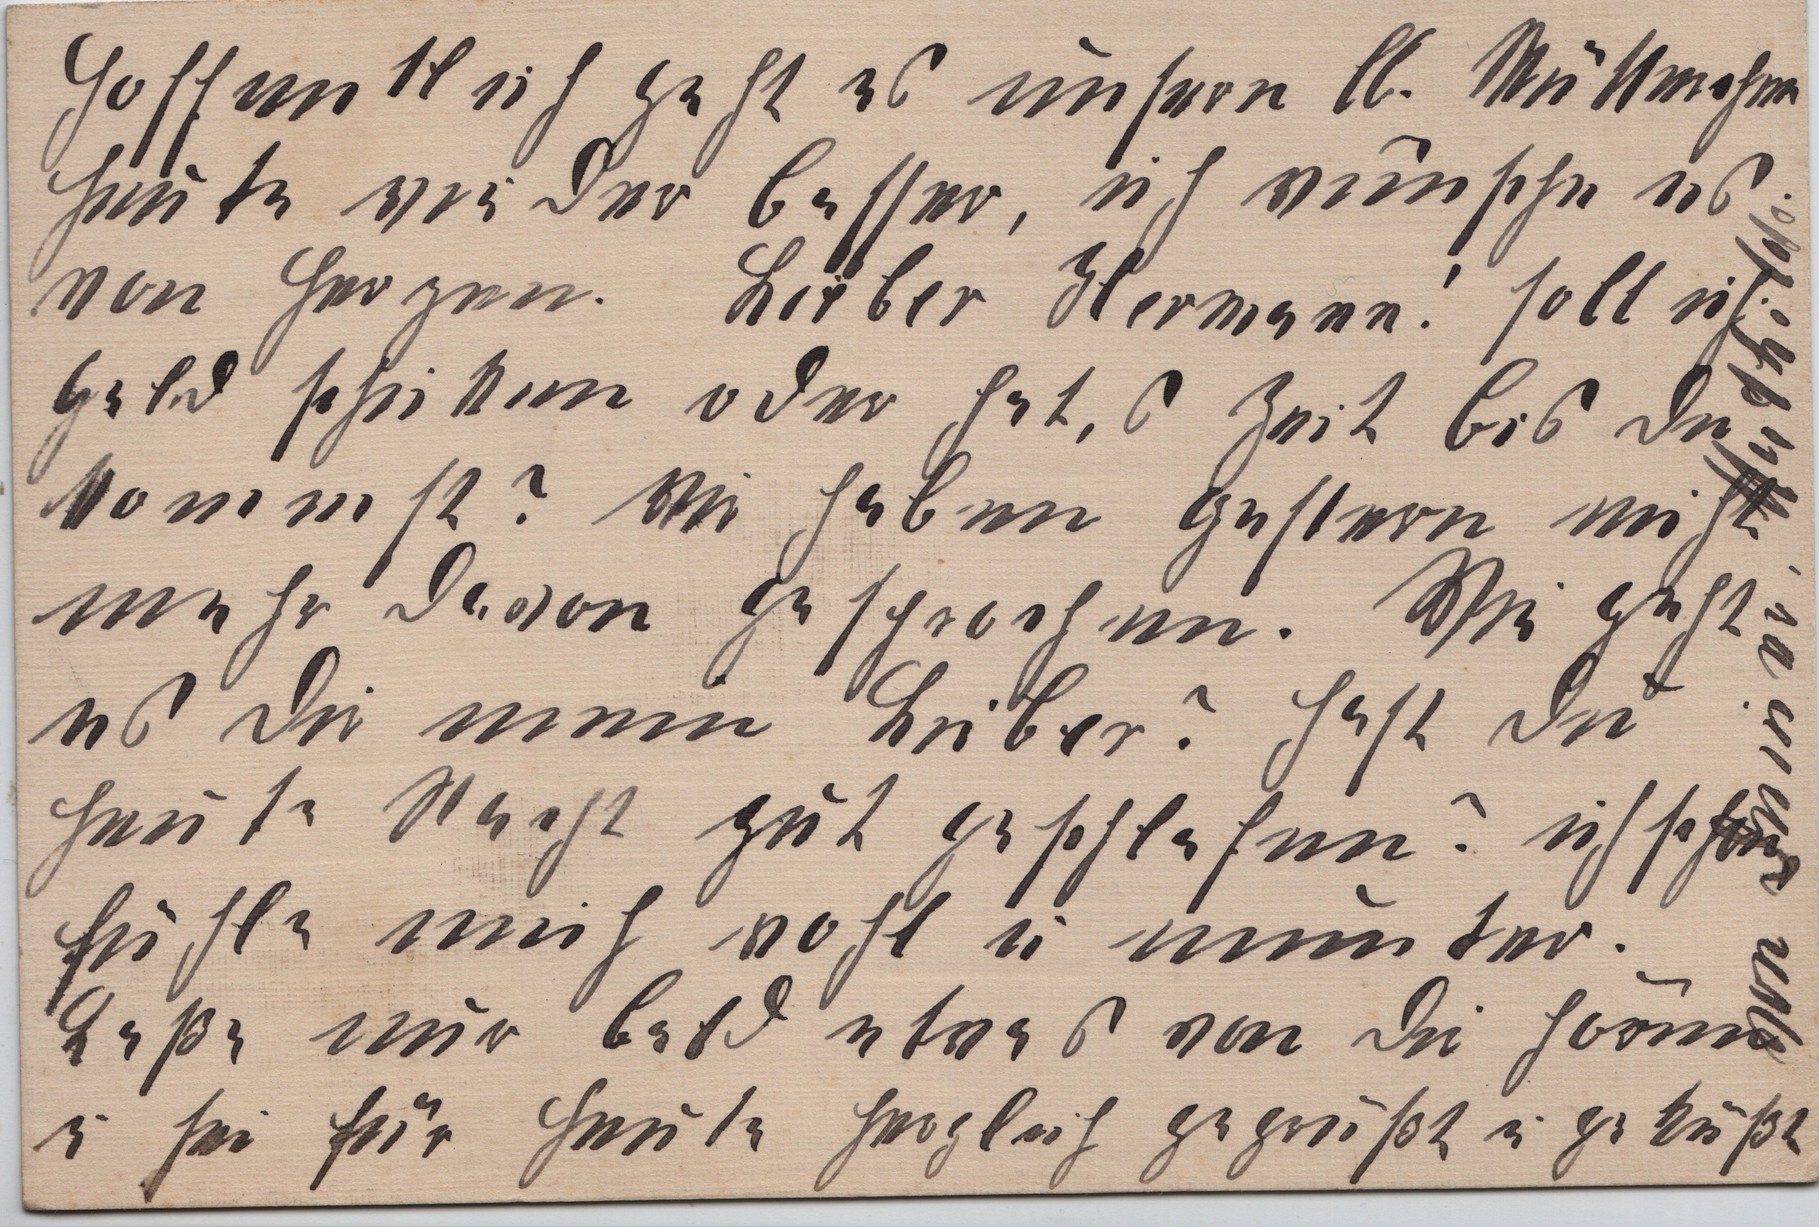 Hoffentlich geht es unsern lb. Mütterchen
heute wieder besser, ich wünsche es
von Herzen. Lieber Hermann! soll ich
Geld schicken oder hat,s Zeit bis Du
kommst? Wir haben gestern nicht
mehr davon gesprochen. Wie geht
es Dir mein Lieber? Hast Du
heute Nacht gut geschlafen? ich
fühle mich wohl u munter.
Laße nur bald etwas von Dir hören
u sei für heute herzlich gegrüßt u geküßt
von Deiner